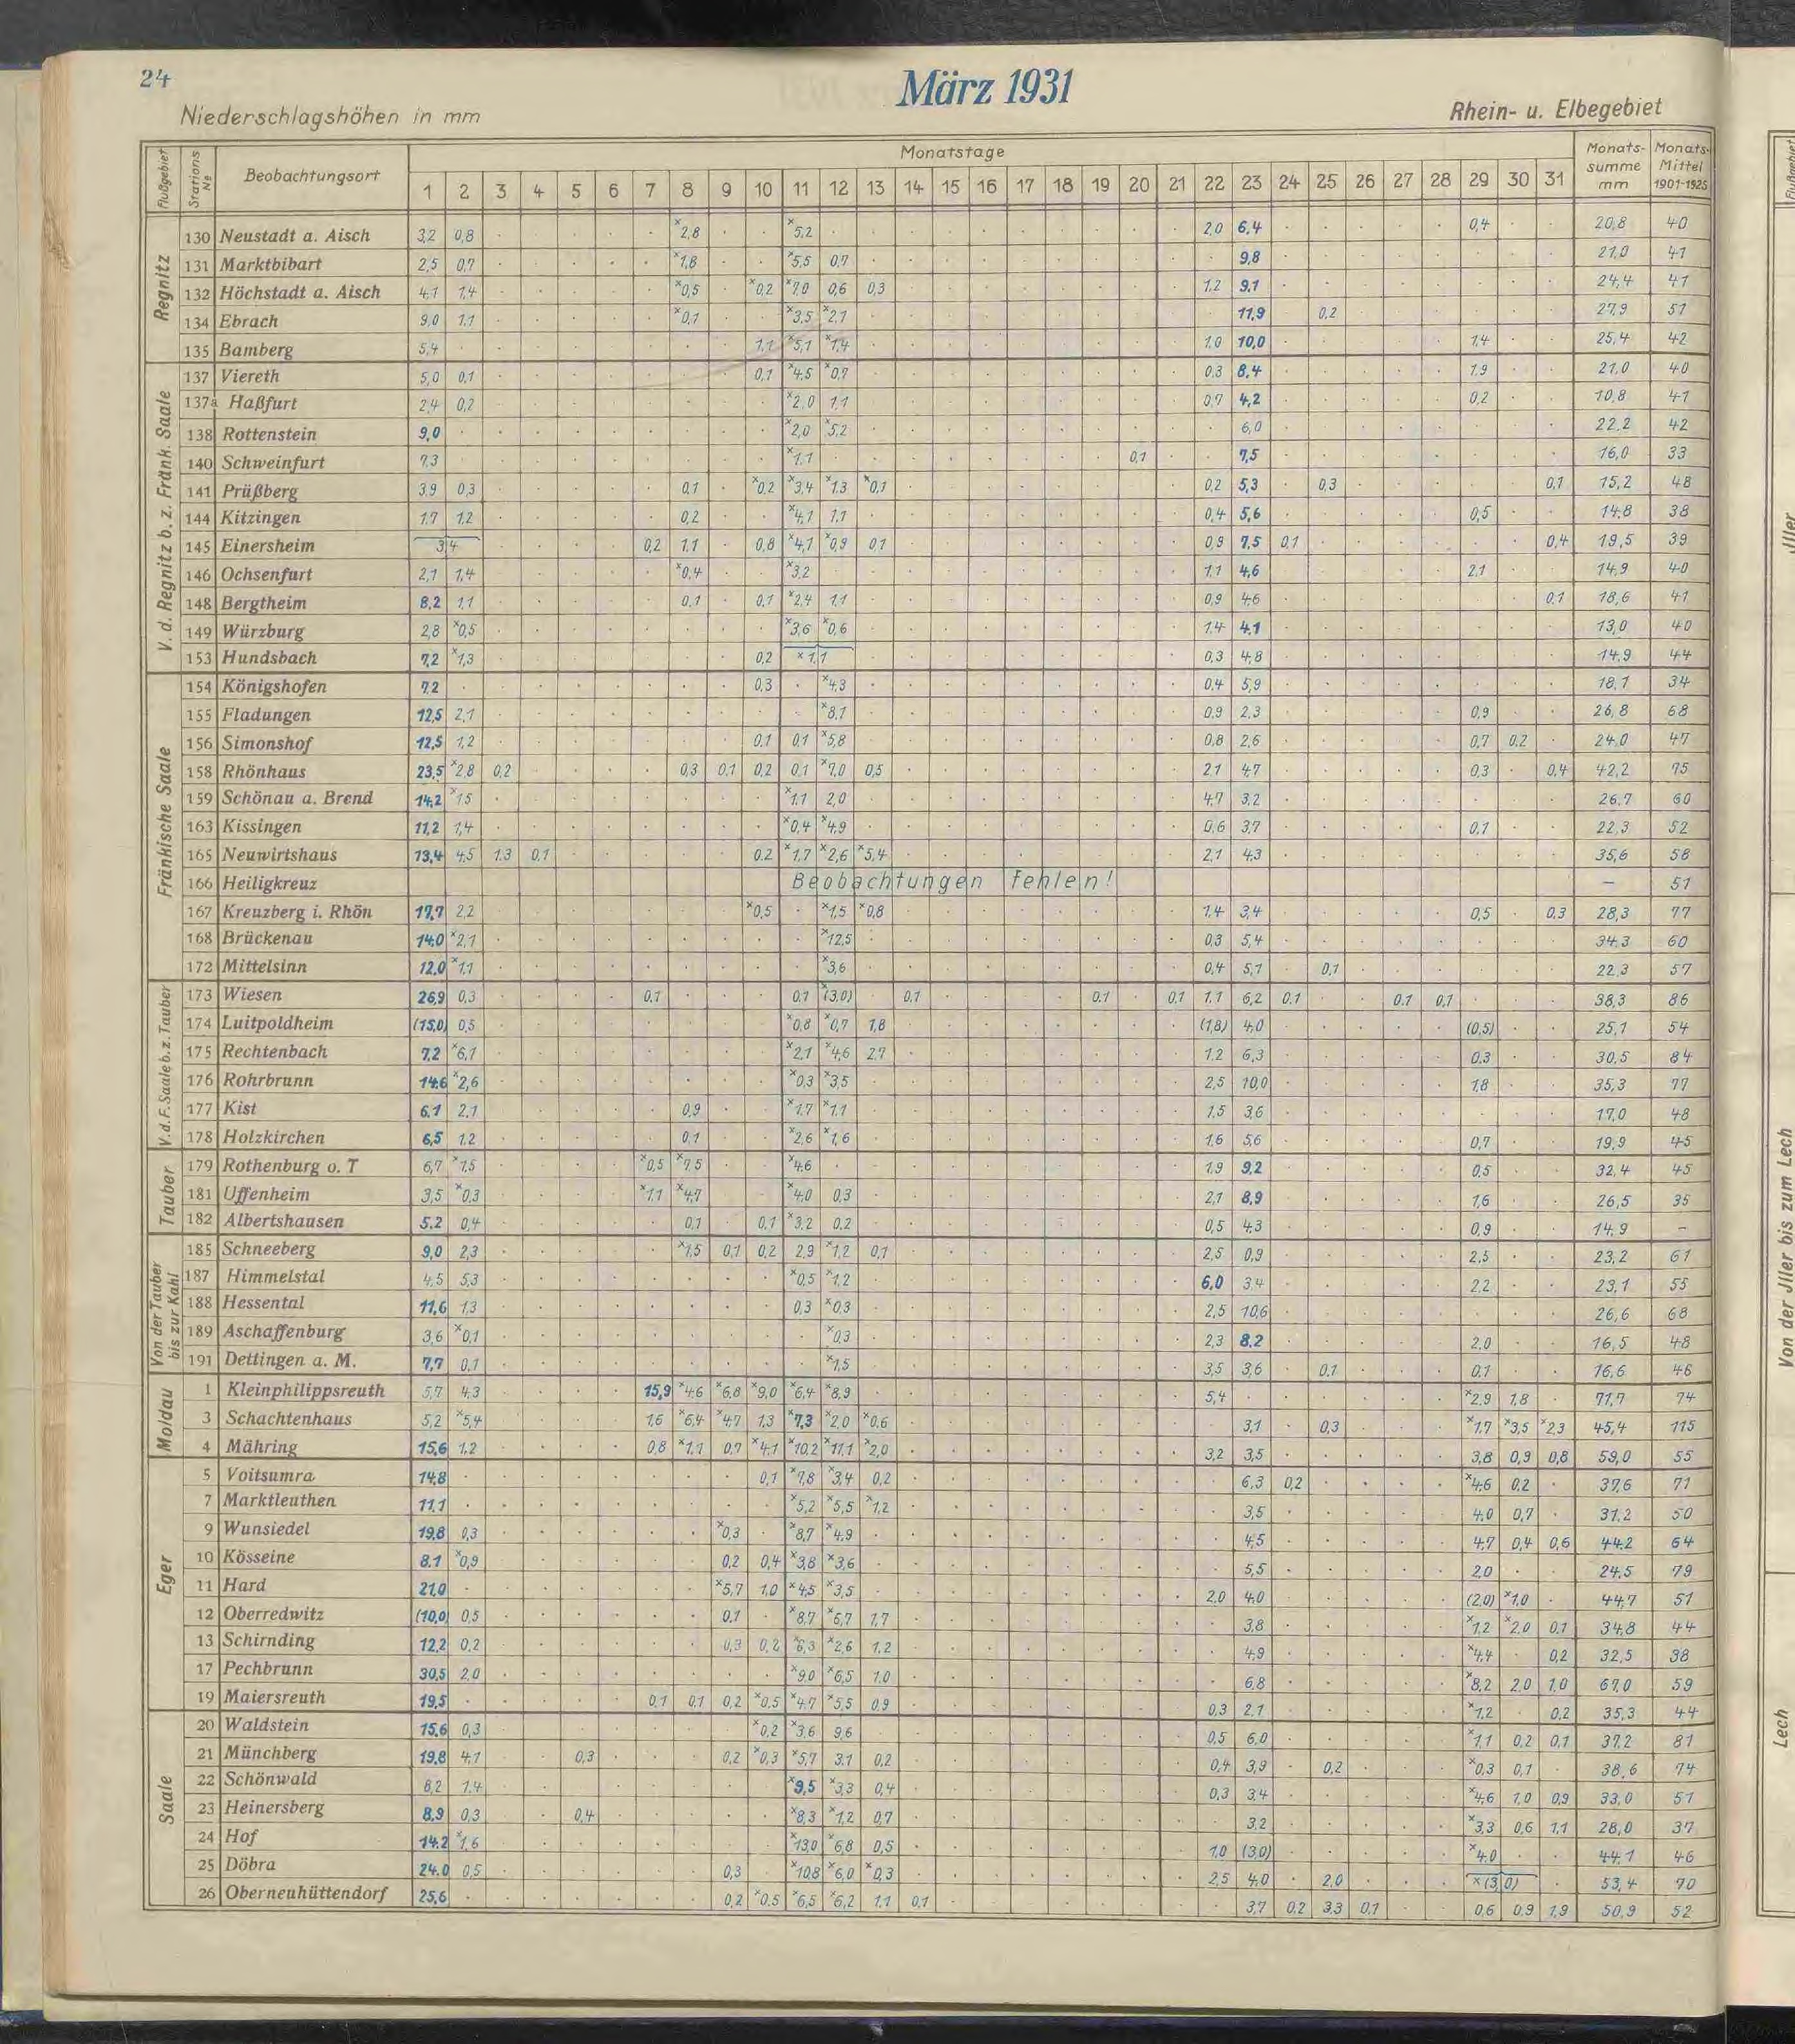 24
März 1931
Niederschlagshöhen in mm
Rhein- u. Elbegebiet
Flußgebiet Stations № Beobachtungsort Monatstage Monats-summe mm Monats-Mittel 1901-1925
1 2 3 4 5 6 7 8 9 10 11 12 13 14 15 16 17 18 19 20 21 22 23 24 25 26 27 28 29 30 31
Regnitz
130 Neustadt a. Aisch 3,2 0,8 · · · · · ×2,8 · · ×5,2 · · · · · · · · · · 2,0 6,4 · · · · · 0,4 · · 20,8 40
131 Marktbibart 2,5 0,7 · · · · · ×1,8 · · ×5,5 0,7 · · · · · · · · · · 9,8 · · · · · · · · 21,0 41
132 Höchstadt a. Aisch 4,1 1,4 · · · · · ×0,5 · ×0,2 ×7,0 0,6 0,3 · · · · · · · · 1,2 9,1 · · · · · · · · 24,4 41
134 Ebrach 9,0 1,1 · · · · · ×0,1 · · ×3,5 ×2,1 · · · · · · · · · · 11,9 · 0,2 · · · · · · 27,9 51
135 Bamberg 5,4 · · · · · · · · 1,1 ×5,1 ×1,4 · · · · · · · · · 1,0 10,0 · · · · · 1,4 · · 25,4 42
V. d. Regnitz b. z. Fränk. Saale
137 Viereth 5,0 0,1 · · · · · · · 0,1 ×4,5 ×0,7 · · · · · · · · · 0,3 8,4 · · · · · 1,9 · · 21,0 40
137a Haßfurt 2,4 0,2 · · · · · · · · ×2,0 1,1 · · · · · · · · · 0,7 4,2 · · · · · 0,2 · · 10,8 41
138 Rottenstein 9,0 · · · · · · · · · ×2,0 ×5,2 · · · · · · · · · · 6,0 · · · · · · · · 22,2 42
140 Schweinfurt 7,3 · · · · · · · · · ×1,1 · · · · · · · · 0,1 · · 7,5 · · · · · · · · 16,0 33
141 Prüßberg 3,9 0,3 · · · · · 0,1 · ×0,2 ×3,4 ×1,3 ×0,1 · · · · · · · · 0,2 5,3 · 0,3 · · · · · 0,1 15,2 48
144 Kitzingen 1,7 1,2 · · · · · 0,2 · · ×4,1 1,1 · · · · · · · · · 0,4 5,6 · · · · · 0,5 · · 14,8 38
145 Einersheim 3,4 · · · · 0,2 1,1 · 0,8 ×4,1 ×0,9 0,1 · · · · · · · · 0,9 7,5 0,1 · · · · · · 0,4 19,5 39
146 Ochsenfurt 2,1 1,4 · · · · · ×0,4 · · ×3,2 · · · · · · · · · · 1,1 4,6 · · · · · 2,1 · · 14,9 40
148 Bergtheim 8,2 1,1 · · · · · 0,1 · 0,1 ×2,4 1,1 · · · · · · · · · 0,9 4,6 · · · · · · · 0,1 18,6 41
149 Würzburg 2,8 ×0,5 · · · · · · · · ×3,6 ×0,6 · · · · · · · · · 1,4 4,1 · · · · · · · · 13,0 40
153 Hundsbach 7,2 ×1,3 · · · · · · · 0,2 ×1,1 · · · · · · · · · 0,3 4,8 · · · · · · · · 14,9 44
Fränkische Saale
154 Königshofen 7,2 · · · · · · · · 0,3 · ×4,3 · · · · · · · · · 0,4 5,9 · · · · · · · · 18,1 34
155 Fladungen 12,5 2,1 · · · · · · · · · ×8,1 · · · · · · · · · 0,9 2,3 · · · · · 0,9 · · 26,8 68
156 Simonshof 12,5 1,2 · · · · · · · 0,1 0,1 ×5,8 · · · · · · · · · 0,8 2,6 · · · · · 0,7 0,2 · 24,0 47
158 Rhönhaus 23,5 ×2,8 0,2 · · · · 0,3 0,1 0,2 0,1 ×7,0 0,5 · · · · · · · · 2,1 4,7 · · · · · 0,3 · 0,4 42,2 75
159 Schönau a. Brend 14,2 ×1,5 · · · · · · · · ×1,1 2,0 · · · · · · · · · 4,7 3,2 · · · · · · · · 26,7 60
163 Kissingen 11,2 1,4 · · · · · · · · ×0,4 ×4,9 · · · · · · · · · 0,6 3,7 · · · · · 0,1 · · 22,3 52
165 Neuwirtshaus 13,4 4,5 1,3 0,1 · · · · · 0,2 ×1,7 ×2,6 ×5,4 · · · · · · · · 2,1 4,3 · · · · · · · · 35,6 58
166 Heiligkreuz Beobachtungen fehlen! – 51
167 Kreuzberg i. Rhön 17,7 2,2 · · · · · · · ×0,5 · ×1,5 ×0,8 · · · · · · · · 1,4 3,4 · · · · · 0,5 · 0,3 28,3 77
168 Brückenau 14,0 ×2,1 · · · · · · · · · ×12,5 · · · · · · · · · 0,3 5,4 · · · · · · · · 34,3 60
172 Mittelsinn 12,0 ×1,1 · · · · · · · · · ×3,6 · · · · · · · · · 0,4 5,1 · 0,1 · · · · · · 22,3 57
V. d. F. Saale b. z. Tauber
173 Wiesen 26,9 0,3 · · · · 0,1 · · · 0,1 ×(3,0) · 0,1 · · · · 0,1 · 0,1 1,1 6,2 0,1 · · 0,1 0,1 · · · 38,3 86
174 Luitpoldheim (15,0) 0,5 · · · · · · · · ×0,8 ×0,7 1,8 · · · · · · · · (1,8) 4,0 · · · · · (0,5) · · 25,1 54
175 Rechtenbach 7,2 ×6,1 · · · · · · · · ×2,1 ×4,6 2,7 · · · · · · · · 1,2 6,3 · · · · · 0,3 · · 30,5 84
176 Rohrbrunn 14,6 ×2,6 · · · · · · · · ×0,3 ×3,5 · · · · · · · · · 2,5 10,0 · · · · · 1,8 · · 35,3 77
177 Kist 6,1 2,1 · · · · · 0,9 · · ×1,7 ×1,1 · · · · · · · · · 1,5 3,6 · · · · · · · · 17,0 48
178 Holzkirchen 6,5 1,2 · · · · · 0,1 · · ×2,6 ×1,6 · · · · · · · · · 1,6 5,6 · · · · · 0,7 · · 19,9 45
Tauber
179 Rothenburg o. T 6,7 ×1,5 · · · · ×0,5 ×7,5 · · ×4,6 · · · · · · · · · · 1,9 9,2 · · · · · 0,5 · · 32,4 45
181 Uffenheim 3,5 ×0,3 · · · · ×1,1 ×4,7 · · ×4,0 0,3 · · · · · · · · · 2,1 8,9 · · · · · 1,6 · · 26,5 35
182 Albertshausen 5,2 0,4 · · · · · 0,1 · 0,1 ×3,2 0,2 · · · · · · · · · 0,5 4,3 · · · · · 0,9 · · 14,9 –
Von der Tauber bis zur Kahl
185 Schneeberg 9,0 2,3 · · · · · ×1,5 0,1 0,2 2,9 ×1,2 0,1 · · · · · · · · 2,5 0,9 · · · · · 2,5 · · 23,2 61
187 Himmelstal 4,5 5,3 · · · · · · · · ×0,5 ×1,2 · · · · · · · · · 6,0 3,4 · · · · · 2,2 · · 23,1 55
188 Hessental 11,6 1,3 · · · · · · · · 0,3 ×0,3 · · · · · · · · · 2,5 10,6 · · · · · · · · 26,6 68
189 Aschaffenburg 3,6 ×0,1 · · · · · · · · · ×0,3 · · · · · · · · · 2,3 8,2 · · · · · 2,0 · · 16,5 48
191 Dettingen a. M. 7,7 0,1 · · · · · · · · · ×1,5 · · · · · · · · · 3,5 3,6 · 0,1 · · · 0,1 · · 16,6 46
Moldau
1 Kleinphilippsreuth 5,7 4,3 · · · · 15,9 ×4,6 ×6,8 ×9,0 ×6,4 ×8,9 · · · · · · · · · 5,4 · · · · · · ×2,9 1,8 · 71,7 74
3 Schachtenhaus 5,2 ×5,4 · · · · 1,6 ×6,4 ×4,7 1,3 ×7,3 ×2,0 ×0,6 · · · · · · · · · 3,1 · 0,3 · · · ×1,7 ×3,5 ×2,3 45,4 115
4 Mähring 15,6 1,2 · · · · 0,8 ×1,1 0,7 ×4,1 ×10,2 ×11,1 ×2,0 · · · · · · · · 3,2 3,5 · · · · · 3,8 0,9 0,8 59,0 55
Eger
5 Voitsumra 14,8 · · · · · · · · 0,1 ×7,8 ×3,4 0,2 · · · · · · · · · 6,3 0,2 · · · · ×4,6 0,2 · 37,6 71
7 Marktleuthen 11,1 · · · · · · · · · ×5,2 ×5,5 ×1,2 · · · · · · · · · 3,5 · · · · · 4,0 0,7 · 31,2 50
9 Wunsiedel 19,8 0,3 · · · · · · ×0,3 · ×8,7 ×4,9 · · · · · · · · · · 4,5 · · · · · 4,7 0,4 0,6 44,2 64
10 Kösseine 8,1 ×0,9 · · · · · · 0,2 0,4 ×3,8 ×3,6 · · · · · · · · · · 5,5 · · · · · 2,0 · · 24,5 79
11 Hard 21,0 · · · · · · · ×5,7 1,0 ×4,5 ×3,5 · · · · · · · · · 2,0 4,0 · · · · · (2,0) ×1,0 · 44,7 51
12 Oberredwitz (10,0) 0,5 · · · · · · 0,1 · ×8,7 ×6,7 1,7 · · · · · · · · · 3,8 · · · · · ×1,2 ×2,0 0,1 34,8 44
13 Schirnding 12,2 0,2 · · · · · · 0,3 0,2 ×6,3 ×2,6 1,2 · · · · · · · · · 4,9 · · · · · ×4,4 · 0,2 32,5 38
17 Pechbrunn 30,5 2,0 · · · · · · · · ×9,0 ×6,5 1,0 · · · · · · · · · 6,8 · · · · · ×8,2 2,0 1,0 67,0 59
19 Maiersreuth 19,5 · · · · · 0,1 0,1 0,2 ×0,5 ×4,7 ×5,5 0,9 · · · · · · · · 0,3 2,1 · · · · · ×1,2 · 0,2 35,3 44
Saale
20 Waldstein 15,6 0,3 · · · · · · · ×0,2 ×3,6 9,6 · · · · · · · · · 0,5 6,0 · · · · · ×1,1 0,2 0,1 37,2 81
21 Münchberg 19,8 4,1 · · 0,3 · · · 0,2 ×0,3 ×5,7 3,1 0,2 · · · · · · · · 0,4 3,9 · 0,2 · · · ×0,3 0,1 · 38,6 74
22 Schönwald 8,2 1,4 · · · · · · · · ×9,5 ×3,3 0,4 · · · · · · · · 0,3 3,4 · · · · · ×4,6 1,0 0,9 33,0 51
23 Heinersberg 8,9 0,3 · · 0,4 · · · · · ×8,3 ×1,2 0,7 · · · · · · · · · 3,2 · · · · · ×3,3 0,6 1,1 28,0 37
24 Hof 14,2 ×1,6 · · · · · · · · ×13,0 ×6,8 0,5 · · · · · · · · 1,0 (3,0) · · · · · ×4,0 · · 44,1 46
25 Döbra 24,0 0,5 · · · · · · 0,3 · ×10,8 ×6,0 ×0,3 · · · · · · · · 2,5 4,0 · 2,0 · · · ×(3,0) · 53,4 70
26 Oberneuhüttendorf 25,6 · · · · · · · 0,2 ×0,5 ×6,5 ×6,2 1,1 0,1 · · · · · · · · 3,7 0,2 3,3 0,1 · · 0,6 0,9 1,9 50,9 52
Jller
Von der Jller bis zum Lech
Lech